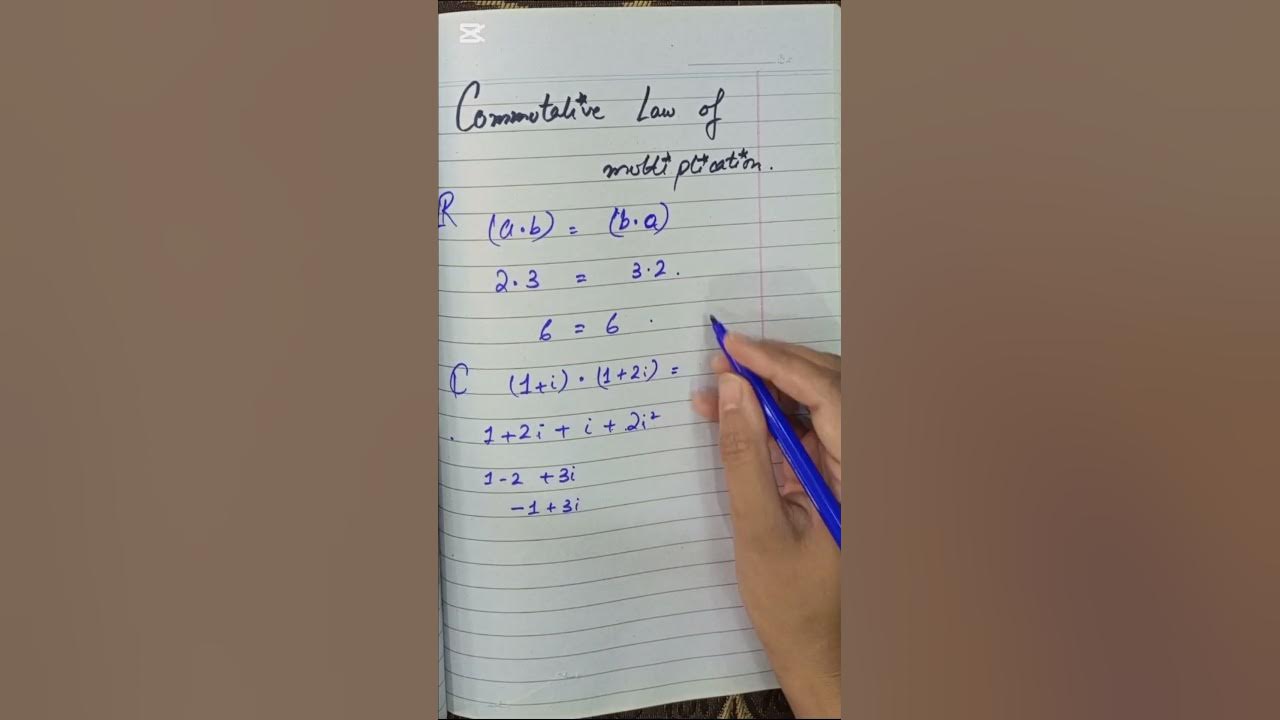 Commutative Law of
multiplication.
R (a.b) = (b.a)
2.3 = 3.2.
6 = 6 .
C (1+i) . (1+2i) =
. 1+2i + i + 2i²
1-2 +3i
-1+3i